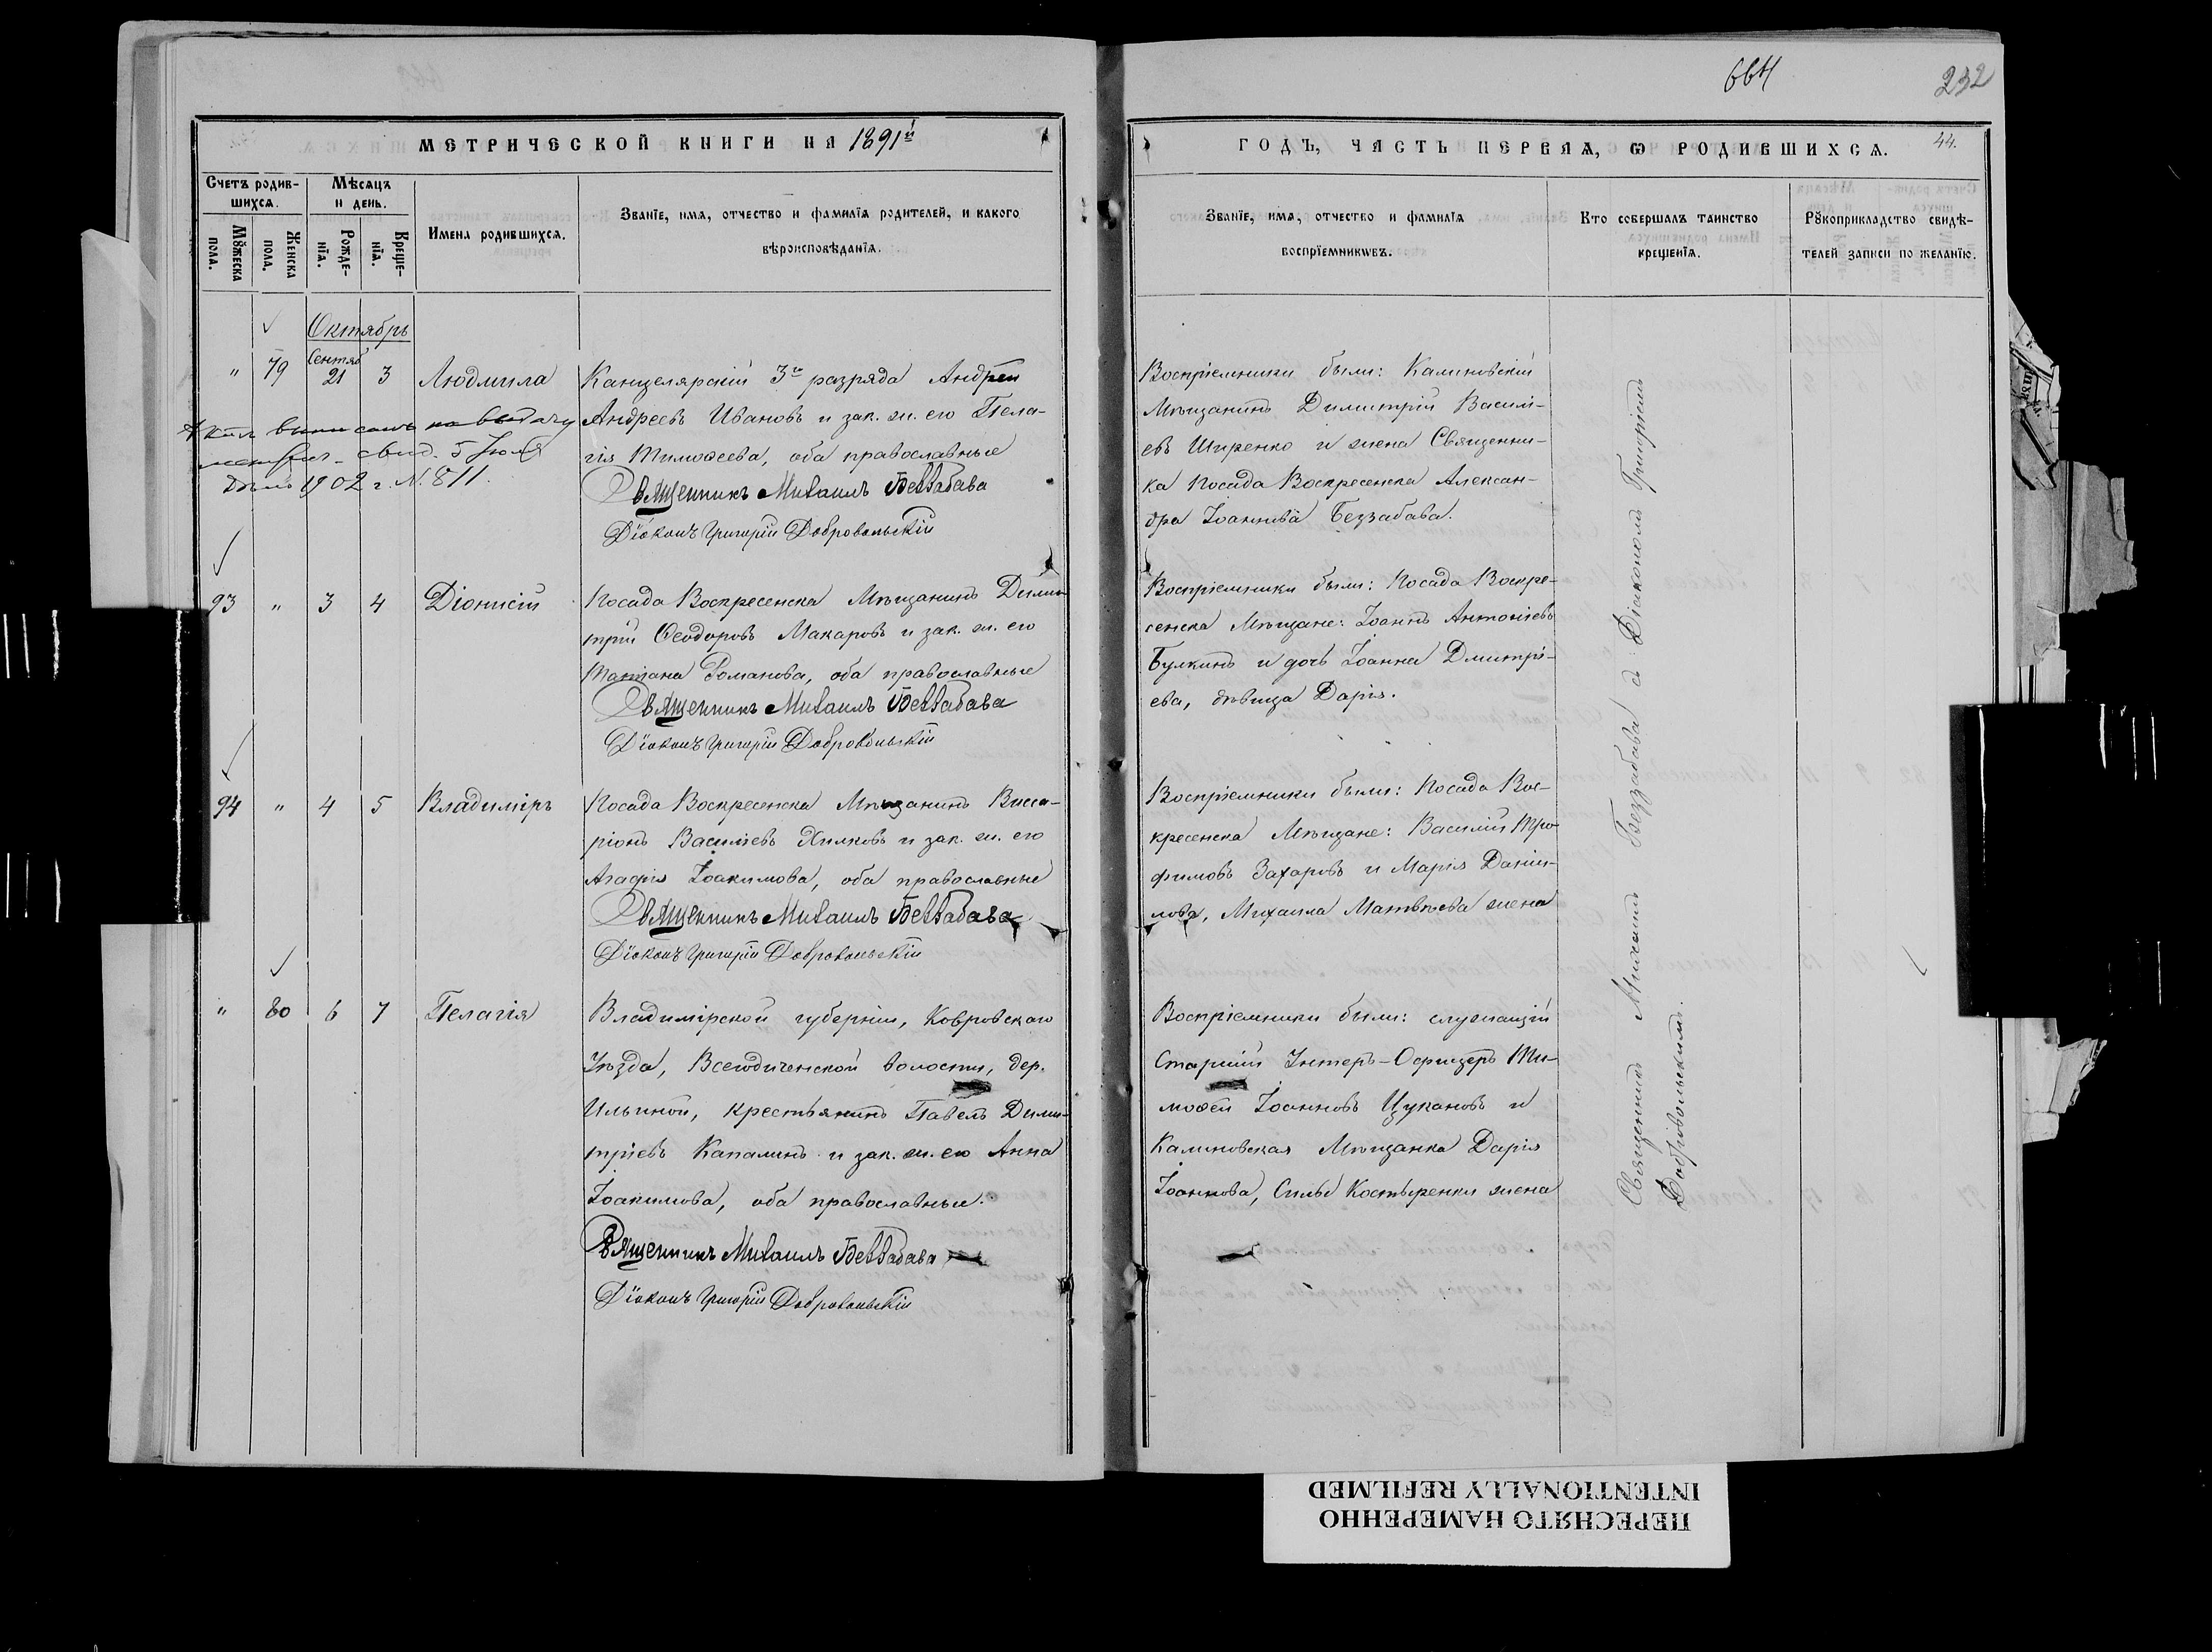 664
232
МЕТРИЧЕСКОЙ КНИГИ НА 1891й
ГОДЪ, ЧАСТЬ ПЕРВАЯ, Ѡ РОДИВШИХСЯ.
44.
Счетъ родив-
шихся.
Мѣсяцъ
и день.
Мꙋжеска
пола.
Женска
пола.
Рожде-
нїя.
Креще-
нїя.
Имена родившихся.
Званїе, имя, отчество и фамилїя родителей, и какого
вѣроисповѣданїя.
Званїе, имя, отчество и фамилїя
воспрїемникѡвъ.
Кто совершалъ таинство
крещенїя.
Рꙋкоприкладство свидѣ-
телей записи по желанїю.
Октябрь
" 79 Сентяб 21 3 Людмила
Канцелярскій 3го разряда Андрей
Андреевъ Ивановъ и зак. ж. его Пела-
гія Тимоѳеева, оба православные
Священникъ Михаилъ Беззабава
Дїаконъ Григорій Добровольскій
выписанъ на выдачу
метрич. свид. 5 Іюля
1902 г. N. 811.
Воспріемники были: Калиновскій
Мѣщанинъ Димитрій Василі-
евъ Ширенко и жена Священни-
ка Посада Воскресенска Алексан-
дра Іоаннова Беззабава.
93 " 3 4 Діонисій
Посада Воскресенска Мѣщанинъ Дими-
трій Ѳеодоровъ Макаровъ и зак. ж. его
Татіана Романова, оба православные
Священникъ Михаилъ Беззабава
Дїаконъ Григорій Добровольскій
Воспріемники были: Посада Воскре-
сенска Мѣщане: Іоаннъ Антоніевъ
Булкинъ и дочь Іоанна Дмитрі-
ева, дѣвица Дарія.
94 " 4 5 Владиміръ
Посада Воскресенска Мѣщанинъ Висса-
ріонъ Василіевъ Хилковъ и зак. ж. его
Агафія Іоакимова, оба православные
Священникъ Михаилъ Беззабава
Дїаконъ Григорій Добровольскій
Воспріемники были: Посада Вос-
кресенска Мѣщане: Василій Тро-
фимовъ Захаровъ и Марія Даніи-
лова, Михаила Матвѣева жена
" 80 6 7 Пелагія
Владимірской губерніи, Ковровскаго
Уѣзда, Всегодиченской волости, дер.
Ильиной, крестьянинъ Павелъ Дими-
тріевъ Капалинъ и зак. ж. его Анна
Іоакимова, оба православные.
Священникъ Михаилъ Беззабава
Дїаконъ Григорій Добровольскій
Воспріемники были: служащій
Старшій Унтеръ-Офицеръ Ти-
моѳей Іоанновъ Цукановъ и
Калиновская Мѣщанка Дарія
Іоаннова, Силы Костыренки жена
Священникъ Михаилъ Беззабава съ Діакономъ Григоріемъ
Добровольскимъ.
ПЕРЕСНЯТО НАМЕРЕННО
INTENTIONALLY REFILMED